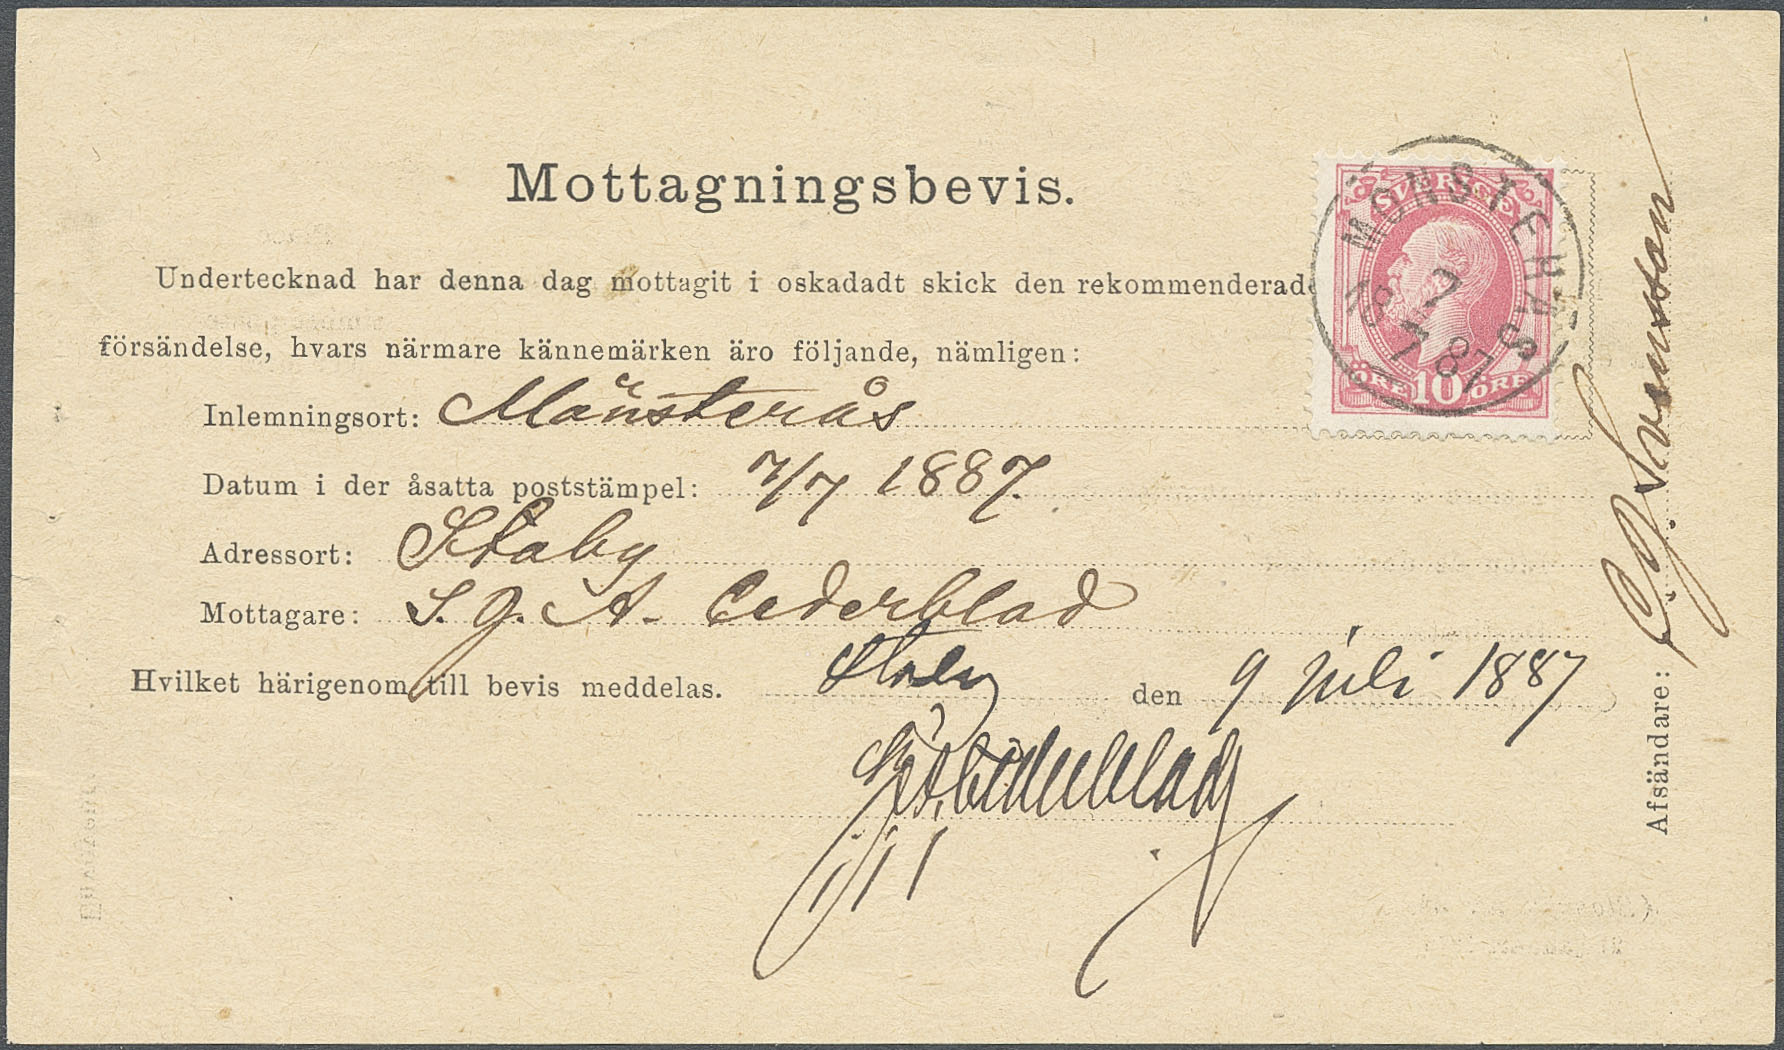 Mottagningsbevis.
SVERIGE
ÖRE 10 ÖRE
MÖNSTERÅS
7 7 87
Undertecknad har denna dag mottagit i oskadadt skick den rekommenderade
försändelse, hvars närmare kännemärken äro följande, nämligen:
Inlemningsort: Mönsterås
Datum i der åsatta poststämpel: 7/7 1887.
Adressort: Staby
Mottagare: S. G. A. Cederblad
Hvilket härigenom till bevis meddelas. Staby den 9 juli 1887
Cederblad
Afsändare: Svensson